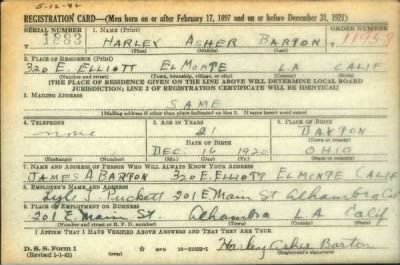 5-12-42
REGISTRATION CARD—(Men born on or after February 17, 1897 and on or before December 31, 1921)
SERIAL NUMBER 1. NAME (Print) ORDER NUMBER
1883 HARLEY ASHER BARTON 11958
(First) (Middle) (Last)
2. PLACE OF RESIDENCE (Print)
320 E. ELLIOTT EL MONTE L.A CALIF
(Number and street) (Town, township, village, or city) (County) (State)
[THE PLACE OF RESIDENCE GIVEN ON THE LINE ABOVE WILL DETERMINE LOCAL BOARD
JURISDICTION; LINE 2 OF REGISTRATION CERTIFICATE WILL BE IDENTICAL]
3. MAILING ADDRESS
SAME
[Mailing address if other than place indicated on line 2. If same insert word same]
4. TELEPHONE 5. AGE IN YEARS 6. PLACE OF BIRTH
none 21 DAYTON
DATE OF BIRTH (Town or county)
DEC. 16 1920 OHIO
(Exchange) (Number) (Mo.) (Day) (Yr.) (State or country)
7. NAME AND ADDRESS OF PERSON WHO WILL ALWAYS KNOW YOUR ADDRESS
JAMES A BARTON 320 E. ELLIOTT EL MONTE CALIF
8. EMPLOYER'S NAME AND ADDRESS
Lyle S. Puckett 201 E Main St Alhambra Cal
9. PLACE OF EMPLOYMENT OR BUSINESS
201 E. Main St. Alhambra L.A Calif
(Number and street or R. F. D. number) (Town) (County) (State)
I AFFIRM THAT I HAVE VERIFIED ABOVE ANSWERS AND THAT THEY ARE TRUE.
D. S. S. Form 1
(Revised 1-1-42) Harley Asher Barton
(Registrant's signature)